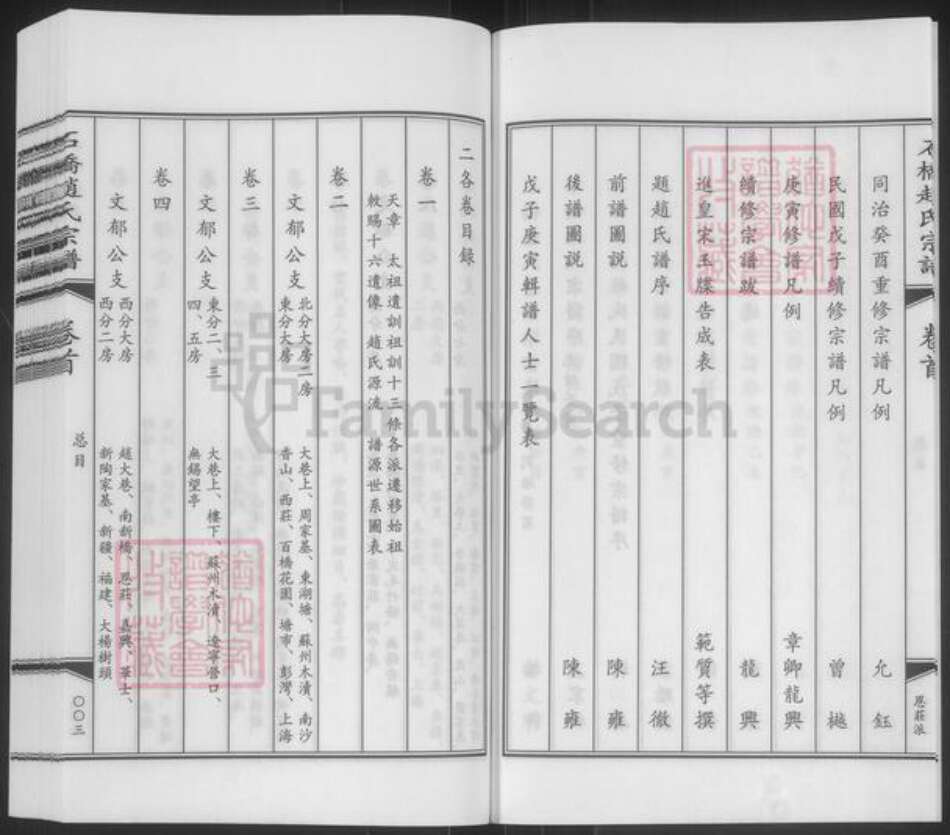 石橋趙氏宗譜 卷首 恩莊派
同治癸酉重修宗譜凡例 允鈺
民國戊子續修宗譜凡例 曾樾
庚寅修譜凡例 章卿龍興
續修宗譜跋 龍興
進皇宋玉牒告成表 範質等撰
題趙氏譜序 汪徹
前譜圖說 陳雍
後譜圖說 陳雍
戊子庚寅輯譜人士一覽表
二各卷目錄
卷一
天章 太祖遺訓祖訓十三條各派遷移始祖
敕賜十六遺像 趙氏源流 譜源世系圖表
卷二
文郁公支 北分大房二房 大巷上、周家基、東湖塘、蘇州木瀆、南沙
東分大房 香山、西莊、百橋花園、塘市、彭灣、上海
卷三
文郁公支 東分二、三 大巷上、樓下、蘇州木瀆、遼寧營口、
四、五房 無錫望亭
卷四
文郁公支 西分大房 趙大巷、南新橋、恩莊、嘉興、華士、
西分二房 新陶家基、新疆、福建、大楊樹頭
石橋趙氏宗譜 卷首 总目 〇〇三
FamilySearch